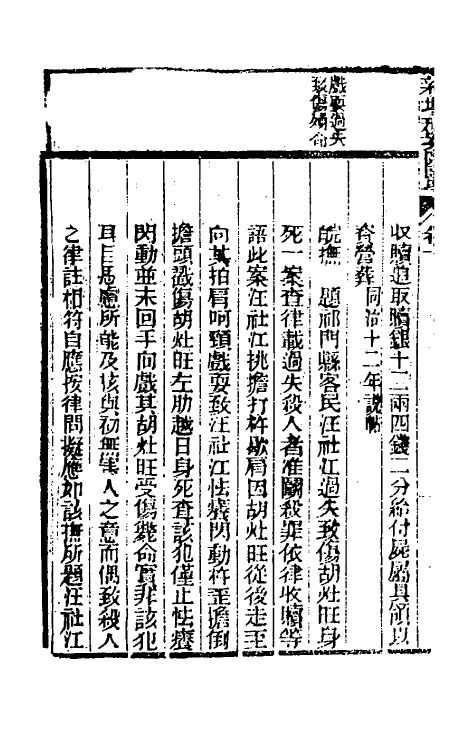 收贖追取贖銀十二兩四錢二分給付屍屬具領以
資營葬　同治十二年說帖
戲耍過失
致傷殞命
皖撫　題祁門縣客民汪社江過失致傷胡灶旺身
死一案查律載過失殺人者准鬬殺罪依律收贖等
語此案汪社江挑擔打杵歇肩因胡灶旺從後走至
向其拍肩呵頸戲耍致汪社江怯癢閃動杵歪擔倒
擔頭戳傷胡灶旺左肋越日身死查該犯僅止怯癢
閃動並未回手向戲其胡灶旺受傷斃命實非該犯
耳目思慮所能及核與初無害人之意而偶致殺人
之律註相符自應按律問擬應如該撫所題汪社江